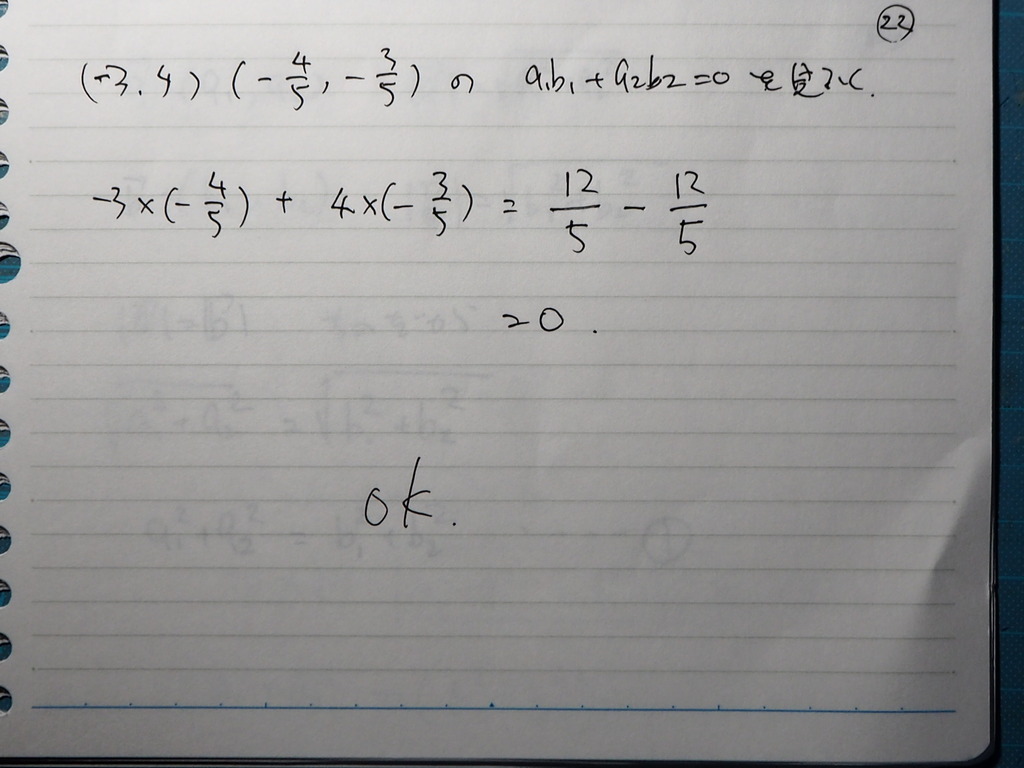 ㉒
(-3, 4) (-4/5, -3/5) の a₁b₁ + a₂b₂ = 0 を
-3 × (-4/5) + 4 × (-3/5) = 12/5 - 12/5
= 0.
ok.